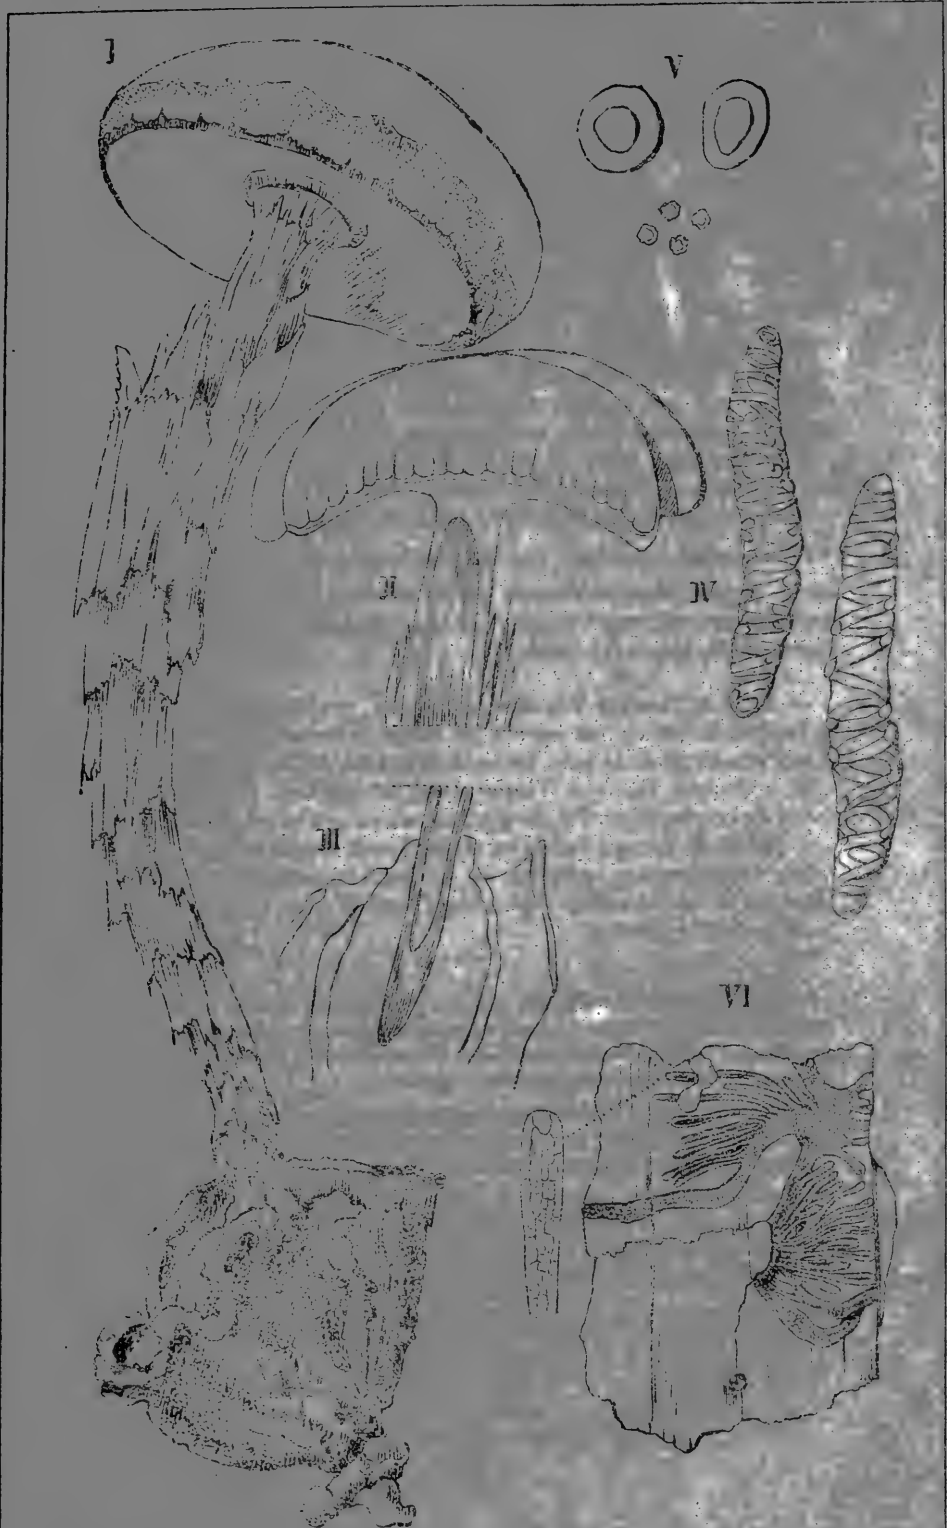 I
V
II
IV
III
VI